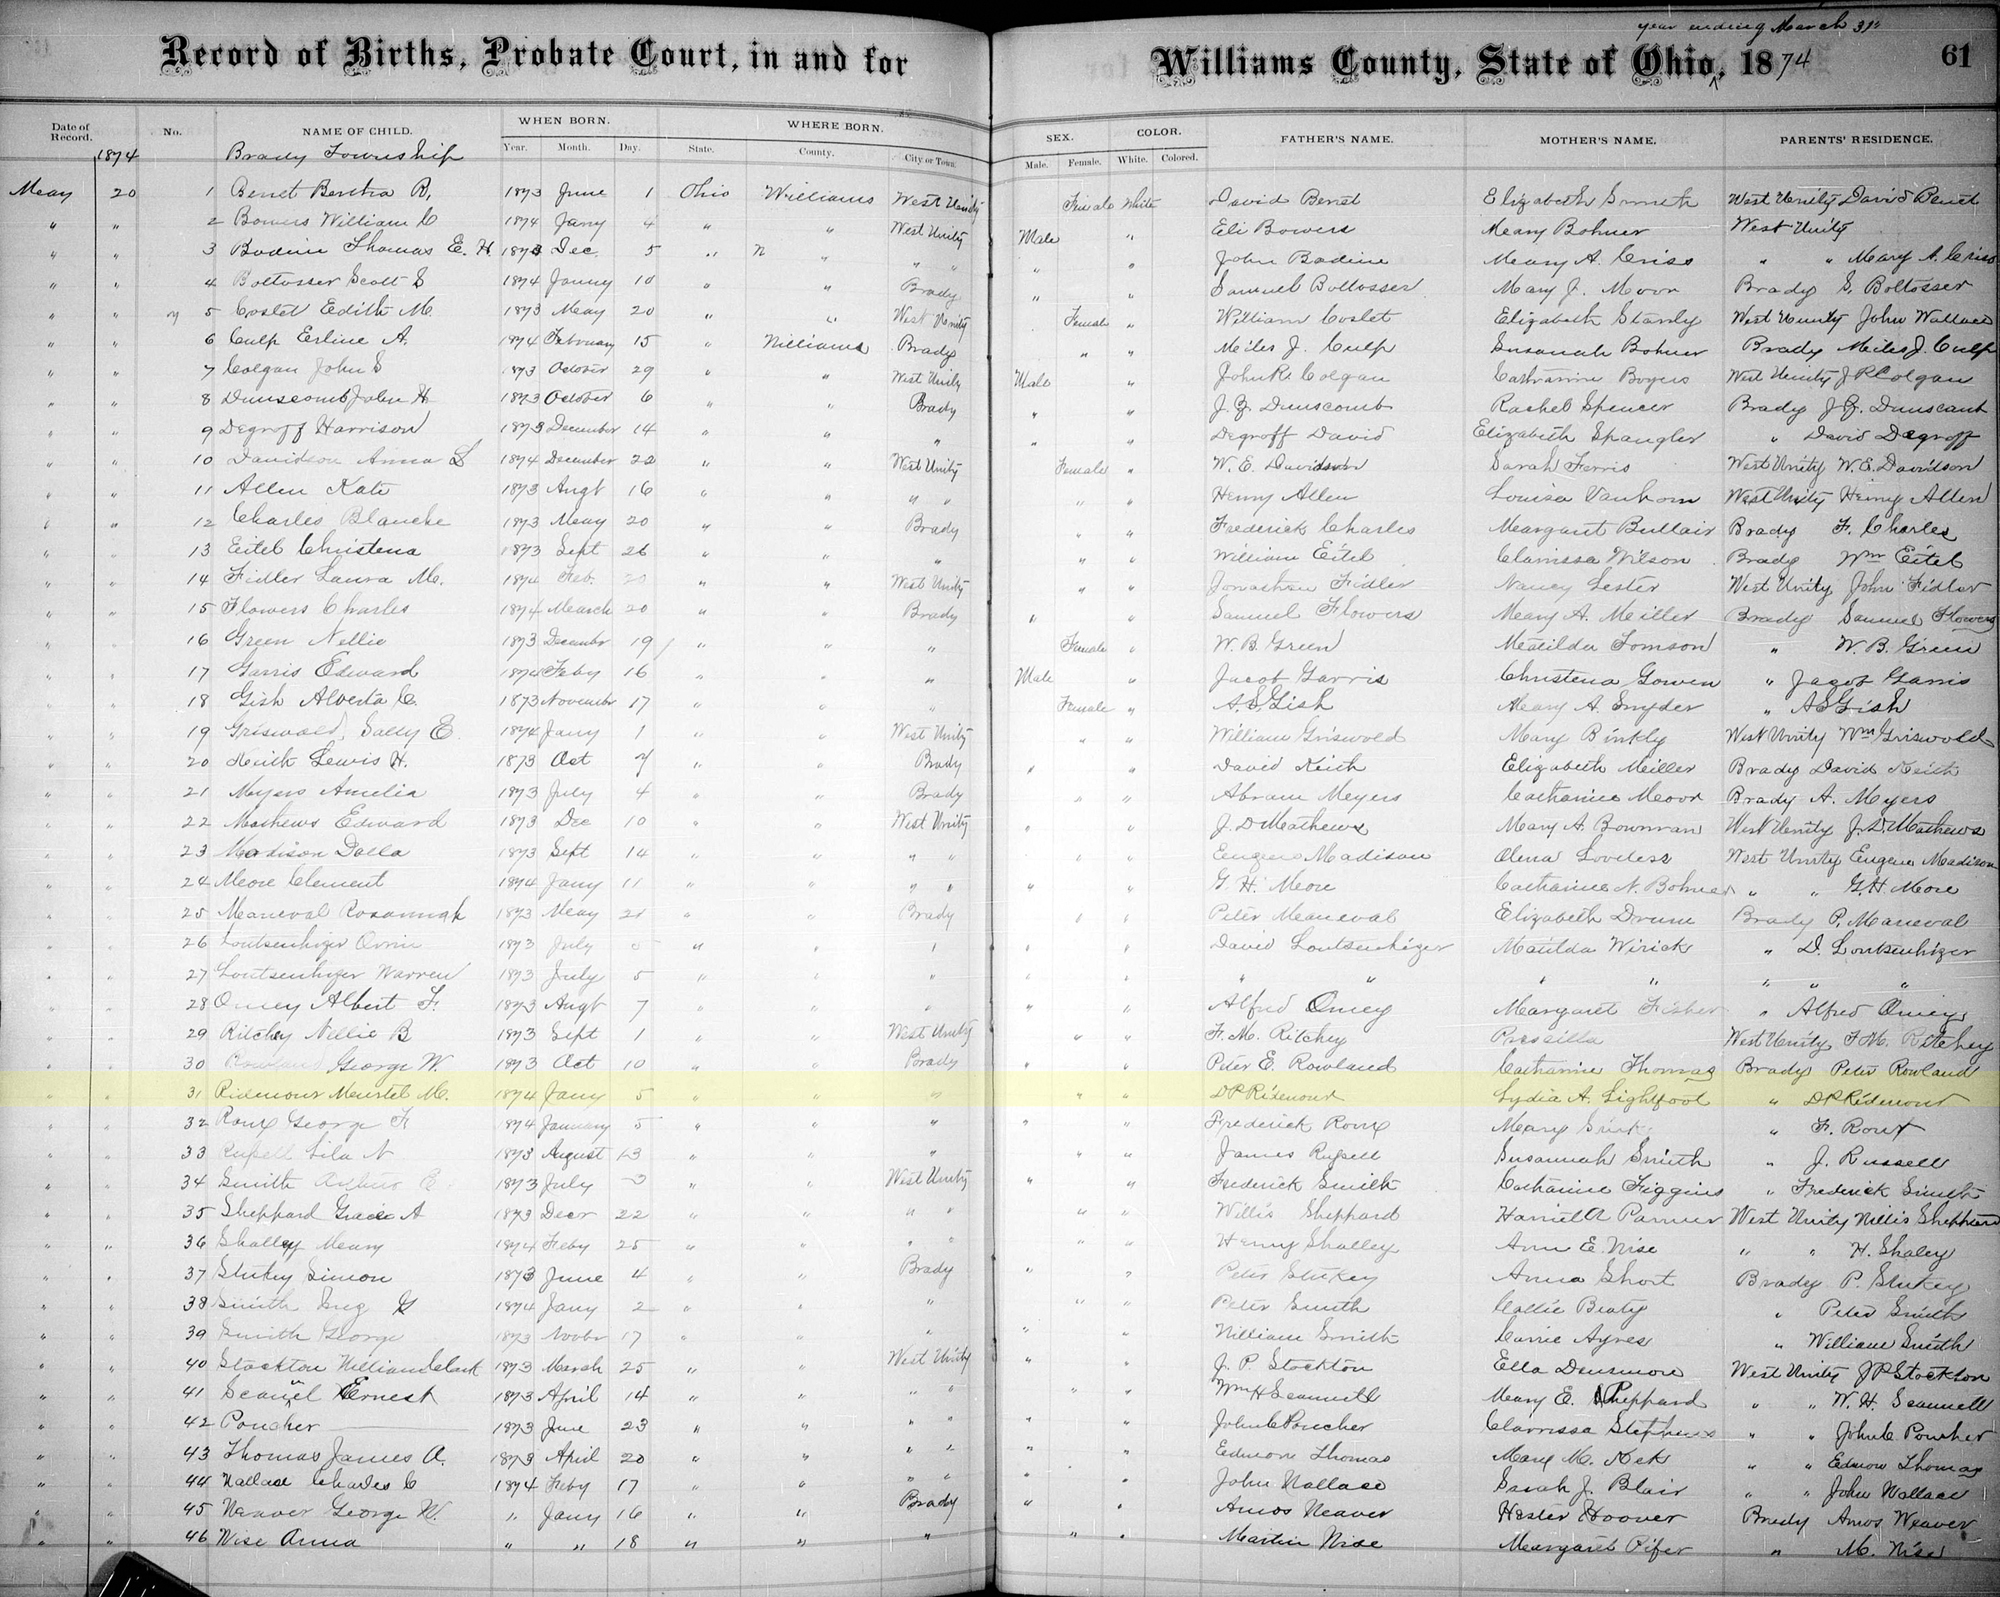 year ending March 31st
Record of Births, Probate Court, in and for Williams County, State of Ohio, 1874 61
Date of Record. No. NAME OF CHILD. WHEN BORN. WHERE BORN. SEX. COLOR. FATHER'S NAME. MOTHER'S NAME. PARENTS' RESIDENCE.
Year. Month. Day. State. County. City or Town. Male. Female. White. Colored.
1874 Brady Township
May 20 1 Benet Bertha B, 1873 June 1 Ohio Williams West Unity Female White David Benet Elizabeth Smith West Unity David Benet
" " 2 Bowers William C 1874 Jany 4 " " West Unity Male " Eli Bowers Mary Bohner West Unity
" " 3 Bodine Thomas E. H 1873 Dec. 5 " " " " " " John Bodine Mary A. Criss " " Mary A. Criss
" " 4 Boltosser Scott S 1874 Janny 10 " " Brady " " Samuel Boltosser Mary J. Moor Brady S. Boltosser
" " 5 Coslet Edith M. 1873 May 20 " " West Unity Female " William Coslet Elizabeth Stanly West Unity John Wallace
" " 6 Culp Erline A. 1874 February 15 " Williams Brady " " Miles J. Culp Susanah Bohner Brady Miles J. Culp
" " 7 Colgan John S 1873 October 29 " " West Unity Male " John R. Colgan Catharine Boyers West Unity J R Colgan
" " 8 Dunscomb John H 1873 October 6 " " Brady " " J. Z. Dunscomb Rachel Spencer Brady J. Z. Dunscomb
" " 9 Degroff Harrison 1873 December 14 " " " " " Degroff David Elizabeth Spangler " David Degroff
" " 10 Davidson Anna L 1874 December 20 " " West Unity Female " W. E. Davidson Sarah Ferris West Unity W. E. Davidson
" " 11 Allen Kate 1873 Augt 16 " " " " " " Henry Allen Louisa Vanhorn West Unity Henry Allen
" " 12 Charles Blanche 1873 May 20 " " Brady " " Frederick Charles Margaret Bullair Brady F. Charles
" " 13 Eitel Christena 1873 Sept 26 " " " " " William Eitel Clarissa Wilson Brady Wm Eitel
" " 14 Fidler Laura M. 1874 Feb. 20 " " West Unity " " Jonathan Fidler Nancy Lester West Unity John Fidler
" " 15 Flowers Charles 1874 March 20 " " Brady " " Samuel Flowers Mary A. Miller Brady Samuel Flowers
" " 16 Green Nellie 1873 December 19 " " " Female " W. B. Green Matilda Tomson " W. B. Green
" " 17 Garris Edward 1874 Feby 16 " " " Male " Jacob Garris Christena Gowen " Jacob Garris
" " 18 Gish Alberta C. 1873 November 17 " " " Female " A. S. Gish Mary A. Snyder " A S Gish
" " 19 Griswold, Sally E. 1874 Jany 1 " " West Unity " " William Griswold Mary Binkly West Unity Wm Griswold
" " 20 Keith Lewis H. 1873 Oct 7 " " Brady " " David Keith Elizabeth Miller Brady David Keith
" " 21 Meyers Amelia 1873 July 4 " " Brady " " Abram Meyers Catharine Moor Brady A. Meyers
" " 22 Mathews Edward 1873 Dec 10 " " West Unity " " J. D Mathews Mary A. Bowman West Unity J. D. Mathews
" " 23 Madison Dolla 1873 Sept 14 " " " " " " Eugene Madison Olena Loveless West Unity Eugene Madison
" " 24 Meore Clement 1874 Jany 11 " " " " " " G. H. Meore Catharine N. Bohner " " G. H. Meore
" " 25 Maneval Rosannah 1873 May 21 " " Brady " " Peter Maneval Elizabeth Drum Brady P. Maneval
" " 26 Loutsenhizer Orrin 1873 July 5 " " " " " David Loutsenhizer Matilda Wirick " D. Loutsenhizer
" " 27 Loutsenhizer Warren 1873 July 5 " " " " " " " " " " " "
" " 28 Omey Albert F. 1873 Augt 7 " " " " " Alfred Omey Margaret Fisher " Alfred Omey
" " 29 Ritchey Nellie B 1873 Sept 1 " " West Unity " " F. M. Ritchey Prescilla West Unity F. M. Ritchey
" " 30 Rowland George W. 1873 Oct 10 " " Brady " " Peter E. Rowland Catharine Thomas Brady Peter Rowland
" " 31 Ridenour Meurtel M. 1874 Jany 5 " " " " " D P Ridenour Lydia A. Lightfoot " D P Ridenour
" " 32 Roux George F. 1874 January 5 " " " " " Frederick Roux Mary " F. Roux
" " 33 Russell Lila N 1873 August 13 " " " " " James Russell Susannah Smith " J. Russell
" " 34 Smith Arthur E. 1873 July 3 " " West Unity " " Frederick Smith Catharine Figgins " Frederick Smith
" " 35 Sheppard Gracie A 1873 Decr 22 " " " " " " Willis Sheppard Harriet A Parmer West Unity Willis Sheppard
" " 36 Shalley Mary 1874 Feby 25 " " " " " " Henry Shalley Ann E. Wise " " H. Shaley
" " 37 Stukey Simon 1873 June 4 " " Brady " " Peter Stukey Anna Short Brady P. Stukey
" " 38 Smith G 1874 Jany 2 " " " " " Peter Smith Callie Beaty " Peter Smith
" " 39 Smith George 1873 Novbr 17 " " " " " William Smith Carrie Ayres " William Smith
" " 40 Stockton William Clark 1873 March 25 " " West Unity " " J. P. Stockton Ella Densmore West Unity J P Stockton
" " 41 Scannel Ernest 1873 April 14 " " " " " " Wm H Scannell Mary E. Sheppard " " W. H. Scannell
" " 42 Poucher 1873 June 23 " " " " " " John C Poucher Clarrissa Stephens " " John C Poucher
" " 43 Thomas James A. 1873 April 20 " " " " " " Edmon Thomas Mary M. Kek " " Edmon Thomas
" " 44 Wallace Charles C 1874 Feby 17 " " " " " " John Wallace Sarah J. Blair " " John Wallace
" " 45 Weaver George W. " Jany 16 " " Brady " " Amos Weaver Hester Hoover Brady Amos Weaver
" " 46 Wise Anna " " 18 " " " " " Martin Wise Margaret Pifer " M. Wise